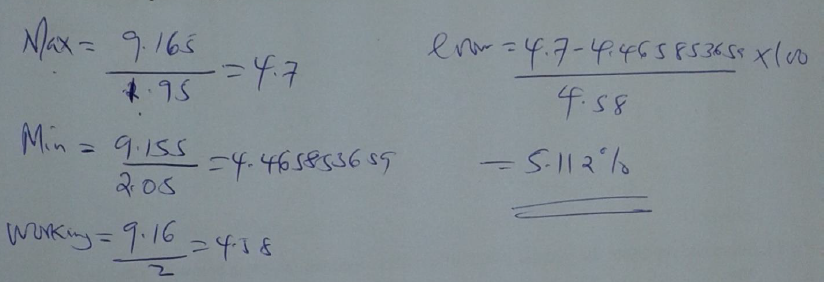 Max = 9.165 / 1.95 = 4.7
Min = 9.155 / 2.05 = 4.465853659
Working = 9.16 / 2 = 4.58
error = 4.7 - 4.465853659 x 100 / 4.58
= 5.112%